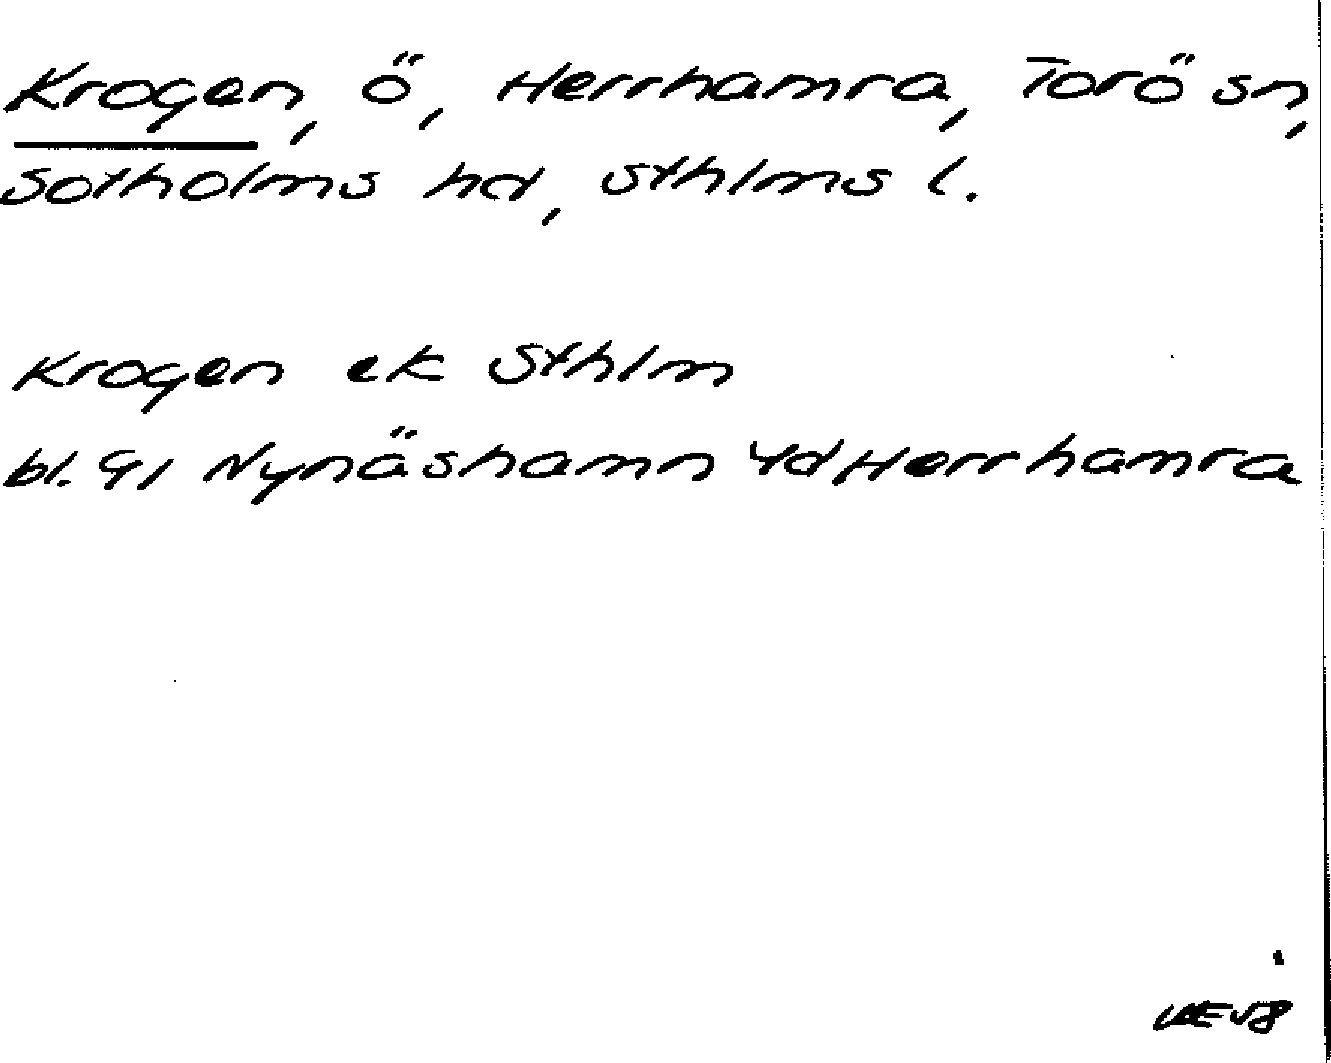 Krogen, ö, Herrhamra, Torö sn,
Sotholms hd, Sthlms l.
Krogen ek Sthlm
bl. 91 Nynäshamn 4d Herrhamra